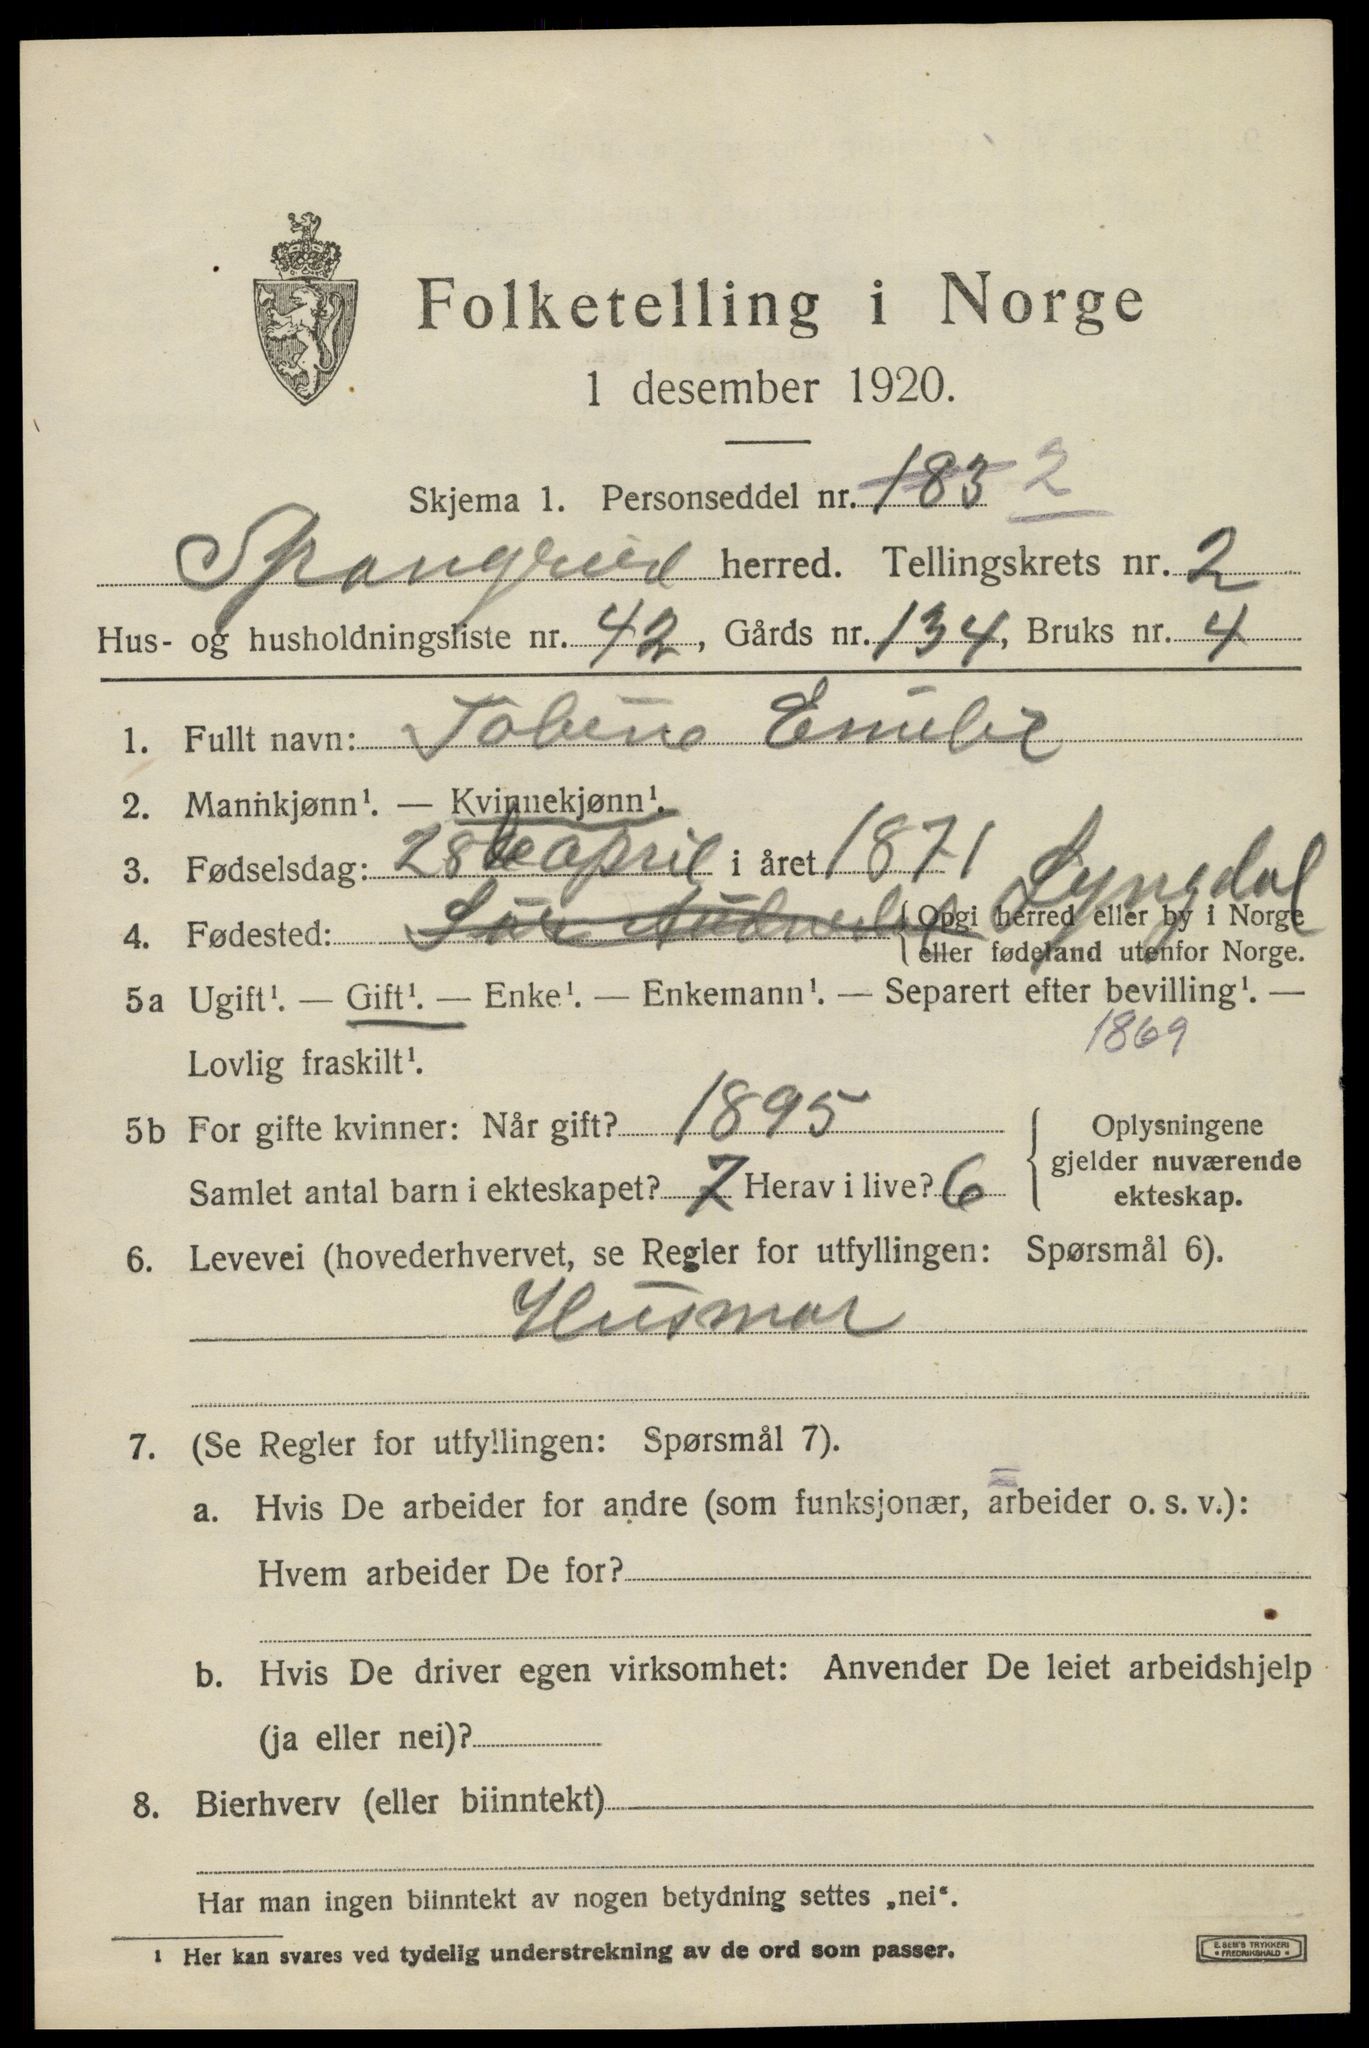 Folketelling i Norge
1 desember 1920.
Skjema 1. Personseddel nr. 183 2
Spangreid herred. Tellingskrets nr. 2
Hus- og husholdningsliste nr. 42, Gårds nr. 134, Bruks nr. 4
1. Fullt navn: Tobine Emilie
2. Mannkjønn¹. — Kvinnekjønn¹.
3. Fødselsdag: 28de april i året 1871
4. Fødested: Sør Audnedal Lyngdal { Opgi herred eller by i Norge
eller fødeland utenfor Norge.
5a Ugift¹. — Gift¹. — Enke¹. — Enkemann¹. — Separert efter bevilling¹. —
Lovlig fraskilt¹. 1869
5b For gifte kvinner: Når gift? 1895
Samlet antal barn i ekteskapet? 7 Herav i live? 6
{ Oplysningene
gjelder nuværende
ekteskap.
6. Levevei (hovederhvervet, se Regler for utfyllingen: Spørsmål 6).
Husmor
7. (Se Regler for utfyllingen: Spørsmål 7).
a. Hvis De arbeider for andre (som funksjonær, arbeider o. s. v.):
Hvem arbeider De for?
b. Hvis De driver egen virksomhet: Anvender De leiet arbeidshjelp
(ja eller nei)?
8. Bierhverv (eller biinntekt)
Har man ingen biinntekt av nogen betydning settes „nei“.
¹ Her kan svares ved tydelig understrekning av de ord som passer.
E. SEM'S TRYKKERI
• FREDRIKSHALD •